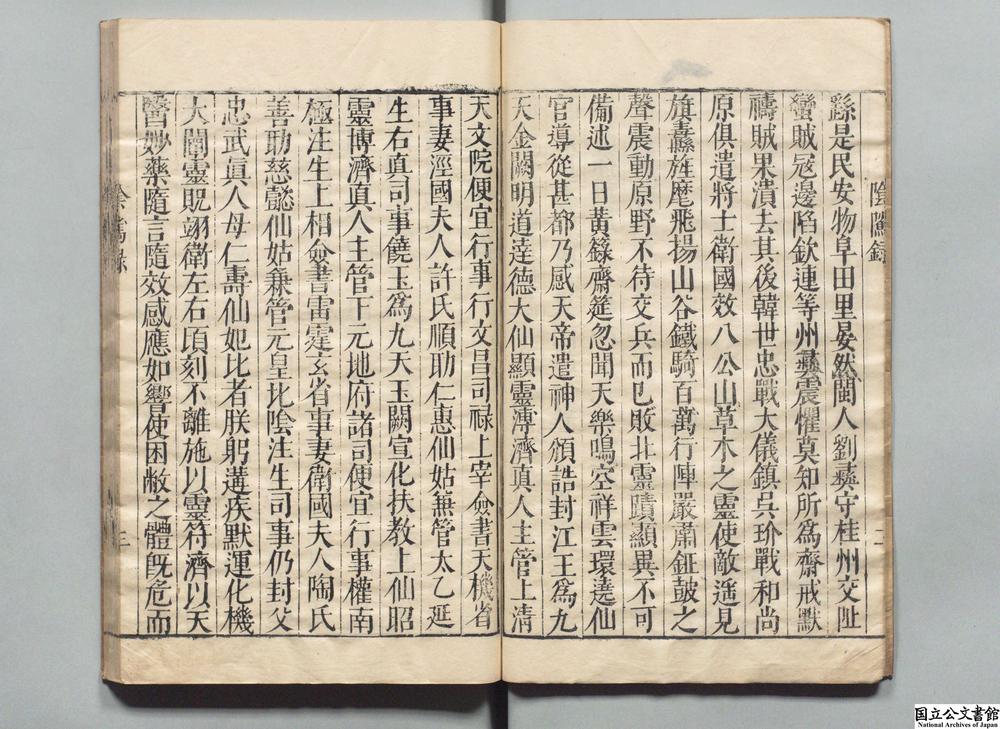 陰隲錄
二
繇是民安物阜田里晏然閩人劉彝守桂州交阯
蠻賊寇邊陷欽連等州彝震懼莫知所為齋戒默
禱賊果潰去其後韓世忠戰大儀鎮吳玠戰和尚
原俱遣將士衛國效八公山草木之靈使敵遥見
旗纛旌麾飛揚山谷鐵騎百萬行陣嚴肅鉦鼓之
聲震動原野不待交兵而已敗北靈蹟顯異不可
備述一日黃籙齋筵忽聞天樂鳴空祥雲環遶仙
官導從甚都乃感天帝遣神人頒誥封江王為九
天金闕明道達德大仙顯靈溥濟真人主管上清
天文院便宜行事行文昌司祿上宰僉書天機省
事妻涇國夫人許氏順助仁惠仙姑兼管太乙延
生右真司事饒玉為九天玉闕宣化扶教上仙昭
靈博濟真人主管下元地府諸司便宜行事權南
極注生上相僉書雷霆玄省事妻衛國夫人陶氏
善助慈懿仙姑兼管元皇比陰注生司事仍封父
忠武眞人母仁壽仙妃比者朕躬遘疾默運化機
大闡靈貺翊衛左右頃刻不離施以靈符濟以天
醫妙藥隨言隨效感應如響使困敝之體旣危而
陰騭錄
三
国立公文書館
National Archives of Japan